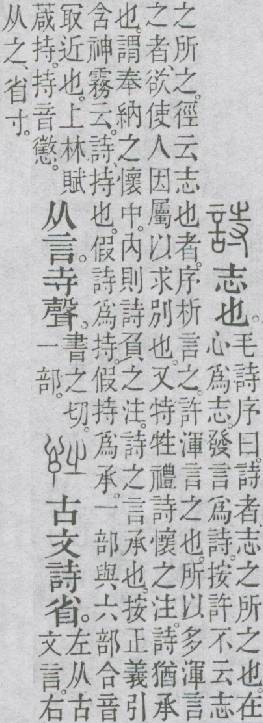 詩志也。毛詩序曰。詩者。志之所之也。在
心爲志。發言爲詩。按許不云志
之所之。徑云志也者。序析言之。許渾言之也。所以多渾言
之者。欲使人因屬以求別也。又特牲禮。詩懷之。注。詩猶承
也。謂奉納之懷中。內則。詩負之。注。詩之言承也。按正義引
含神霧云。詩。持也。假詩爲持。假持爲承。一部與六部合音
㝡近也。上林賦
葴持。持音懲。
从言。寺聲。書之切。
一部。
古文詩省。左从古
文言。右
从之、省寸。